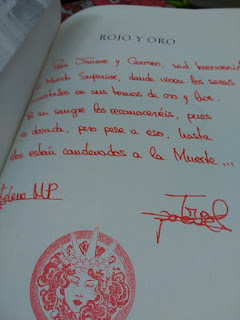 ROJO Y ORO
Para Jaime y Carmen, sed bienvenidos
al Mundo Superior, donde viven los seres
inmortales en sus tronos de oro y luz.
Por su sangre los reconoceréis, pues
es dorada, pero pese a eso, hasta
ellos están condenados a la Muerte...
MP